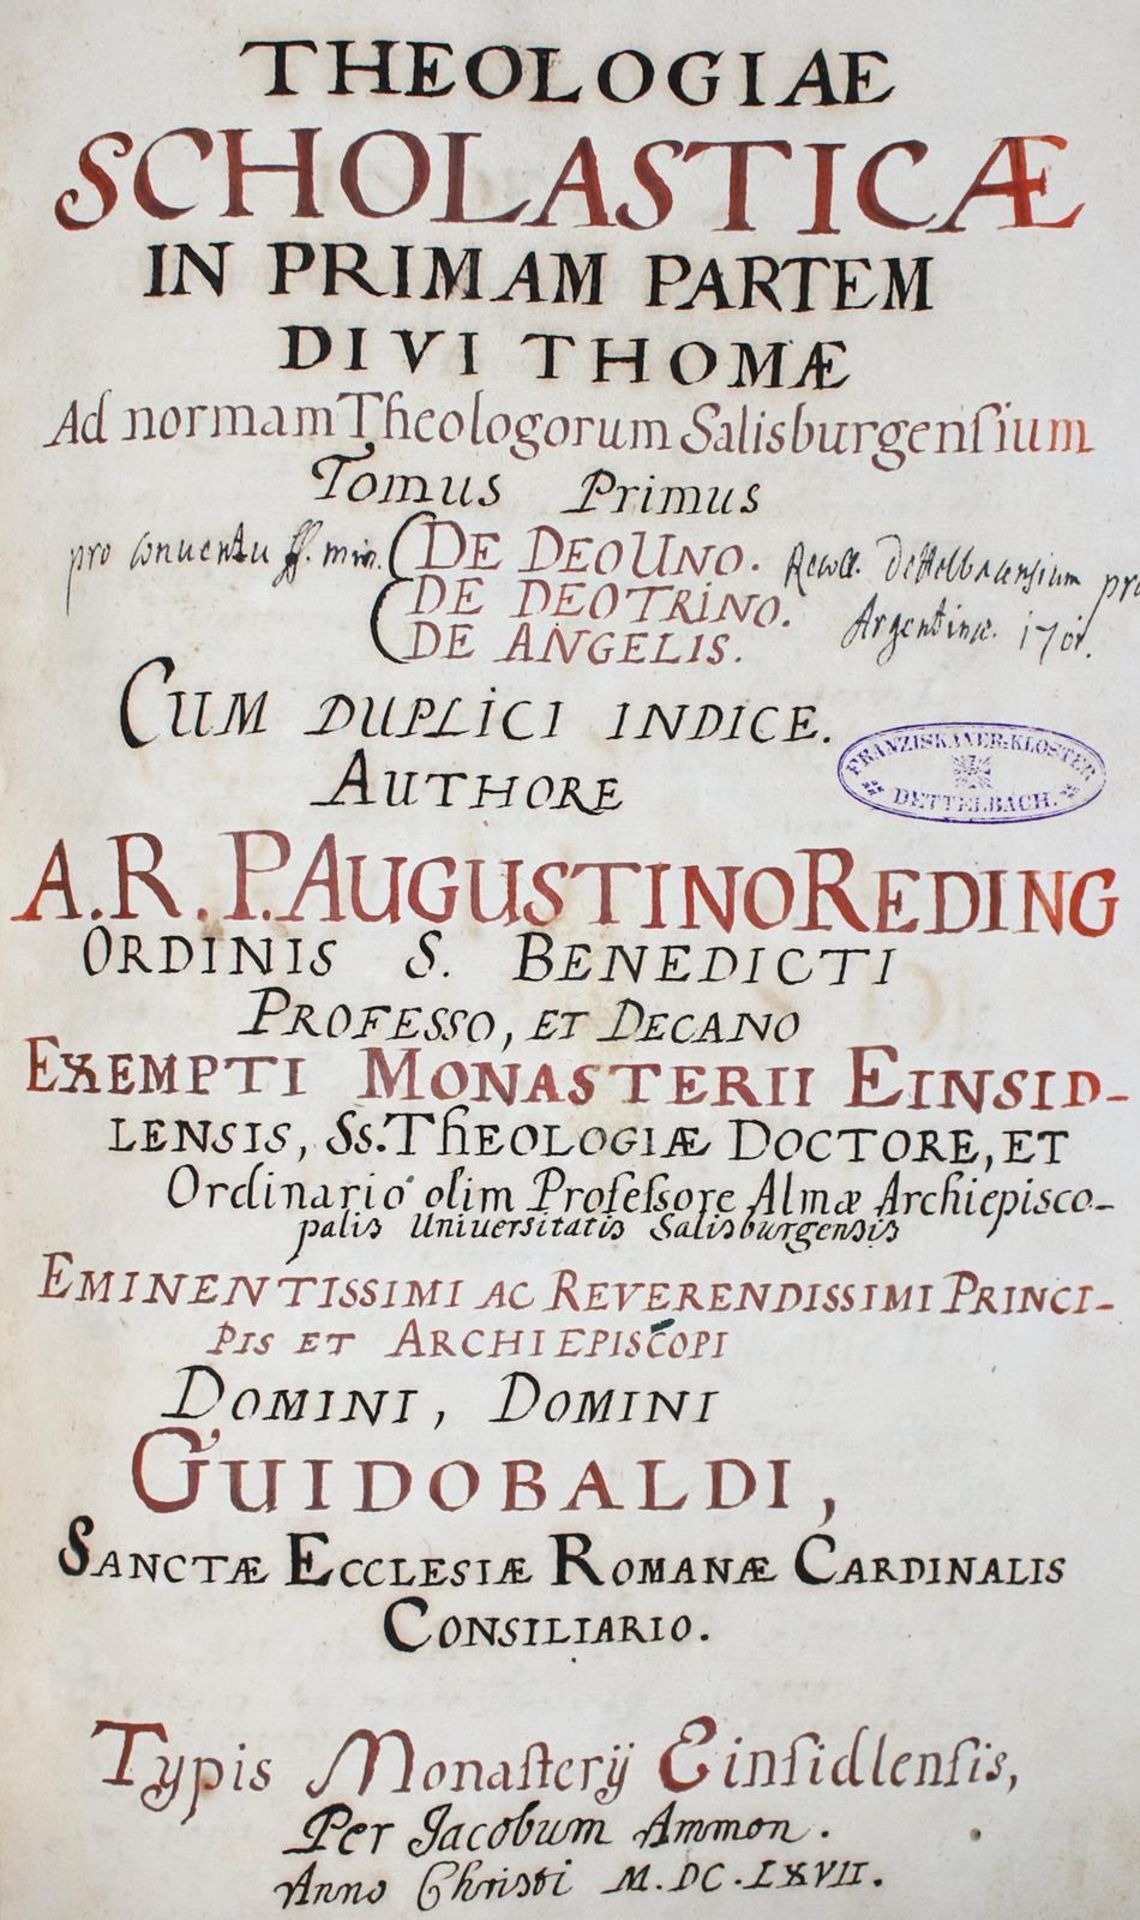 THEOLOGIAE
SCHOLASTICÆ
IN PRIMAM PARTEM
DIVI THOMÆ
Ad normam Theologorum Salisburgensium
Tomus Primus
pro conuentu ff. min. DE DEO UNO. Recoll. Dettelbacensium pro
DE DEO TRINO. Argentinæ. 1701.
DE ANGELIS.
CUM DUPLICI INDICE.
FRANZISKANER-KLOSTER
DETTELBACH.
AUTHORE
A. R. P. AUGUSTINO REDING
ORDINIS S. BENEDICTI
PROFESSO, ET DECANO
EXEMPTI MONASTERII EINSID-
LENSIS, SS. THEOLOGIÆ DOCTORE, ET
Ordinario olim Professore Almæ Archiepisco-
palis Uniuersitatis Salisburgensis
EMINENTISSIMI AC REVERENDISSIMI PRINCI-
PIS ET ARCHIEPISCOPI
DOMINI, DOMINI
GUIDOBALDI,
SANCTÆ ECCLESIÆ ROMANÆ CARDINALIS
CONSILIARIO.
Typis Monasterij Einsidlensis,
Per Jacobum Ammon.
Anno Christi M.DC.LXVII.